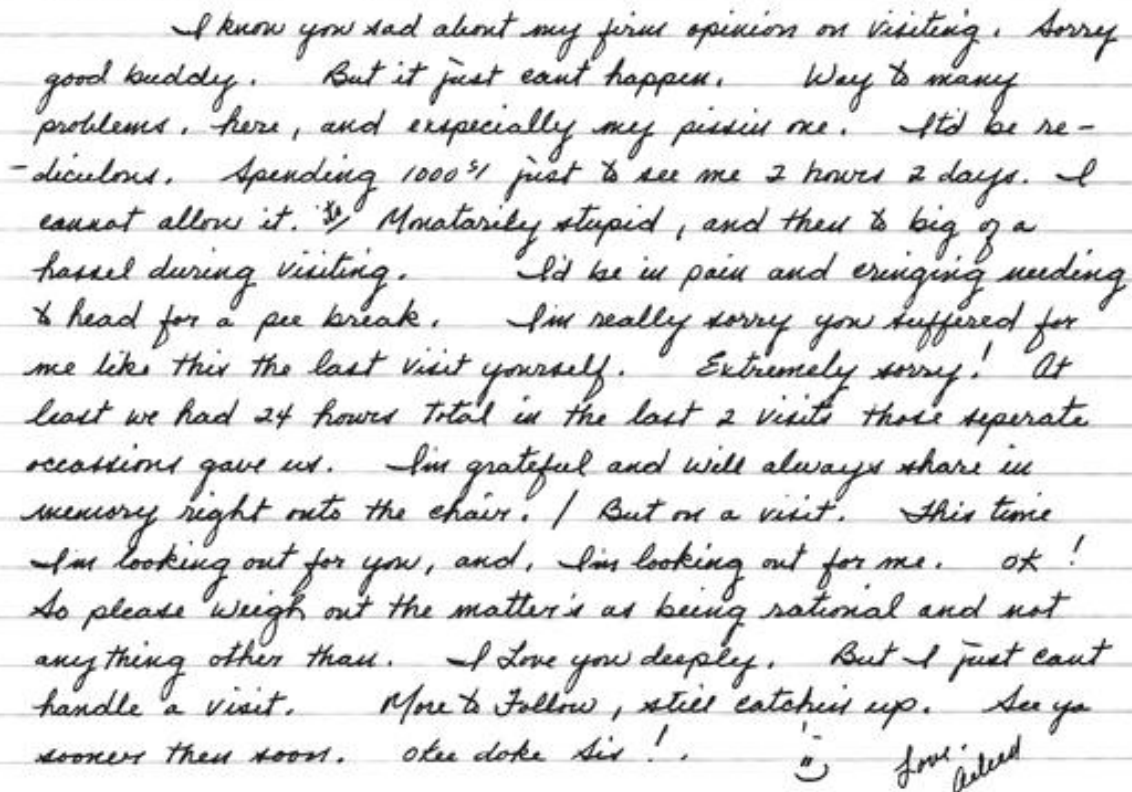 I know you sad about my firm opinion on visiting. Sorry
good buddy. But it just cant happen. Way to many
problems. here, and exspecially my pissin one. Itd be re-
-diculous. Spending 1000 just to see me 2 hours 2 days. I
cannot allow it. Monatarily stupid, and then to big of a
hassel during visiting. I'd be in pain and cringing needing
to head for a pee break. I'm really sorry you suffered for
me like this the last visit yourself. Extremely sorry! At
least we had 24 hours total in the last 2 visits those seperate
occassions gave us. I'm grateful and will always share in
memory right onto the chair. / But on a visit. This time
I'm looking out for you, and, I'm looking out for me. OK!
So please weigh out the matter's as being rational and not
anything other than. I Love you deeply. But I just cant
handle a visit. More to Follow, still catchin up. See ya
sooner then soon. Okee doke Sis!.
Love